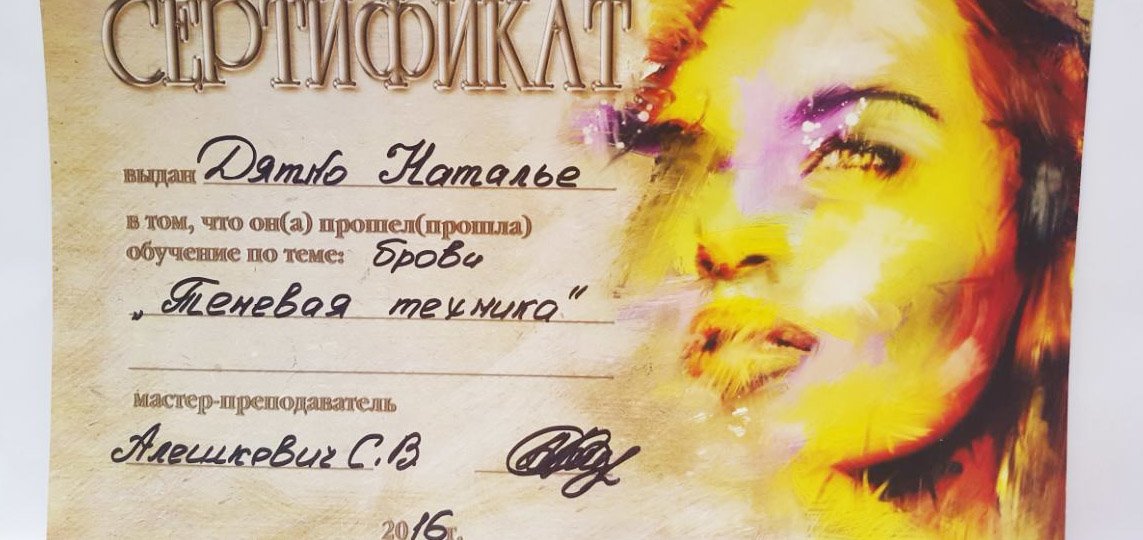 СЕРТИФИКАТ
выдан Дятко Наталье
в том, что он(а) прошел(прошла)
обучение по теме: брови
„Теневая техника“
мастер-преподаватель
Алешкевич С.В
2016г.